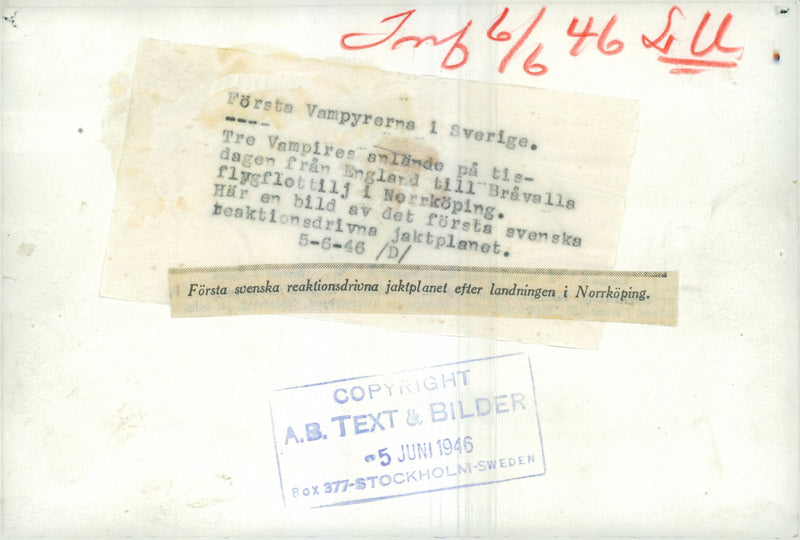 Inf 6/6 46 LU
Första Vampyrerna i Sverige.
----
Tre Vampires anlände på tis-
dagen från England till Bråvalla
flygflottilj i Norrköping.
Här en bild av det första svenska
reaktionsdrivna jaktplanet.
5-6-46 /D/
Första svenska reaktionsdrivna jaktplanet efter landningen i Norrköping.
COPYRIGHT
A.B. TEXT & BILDER
-5 JUNI 1946
BOX 377-STOCKHOLM-SWEDEN